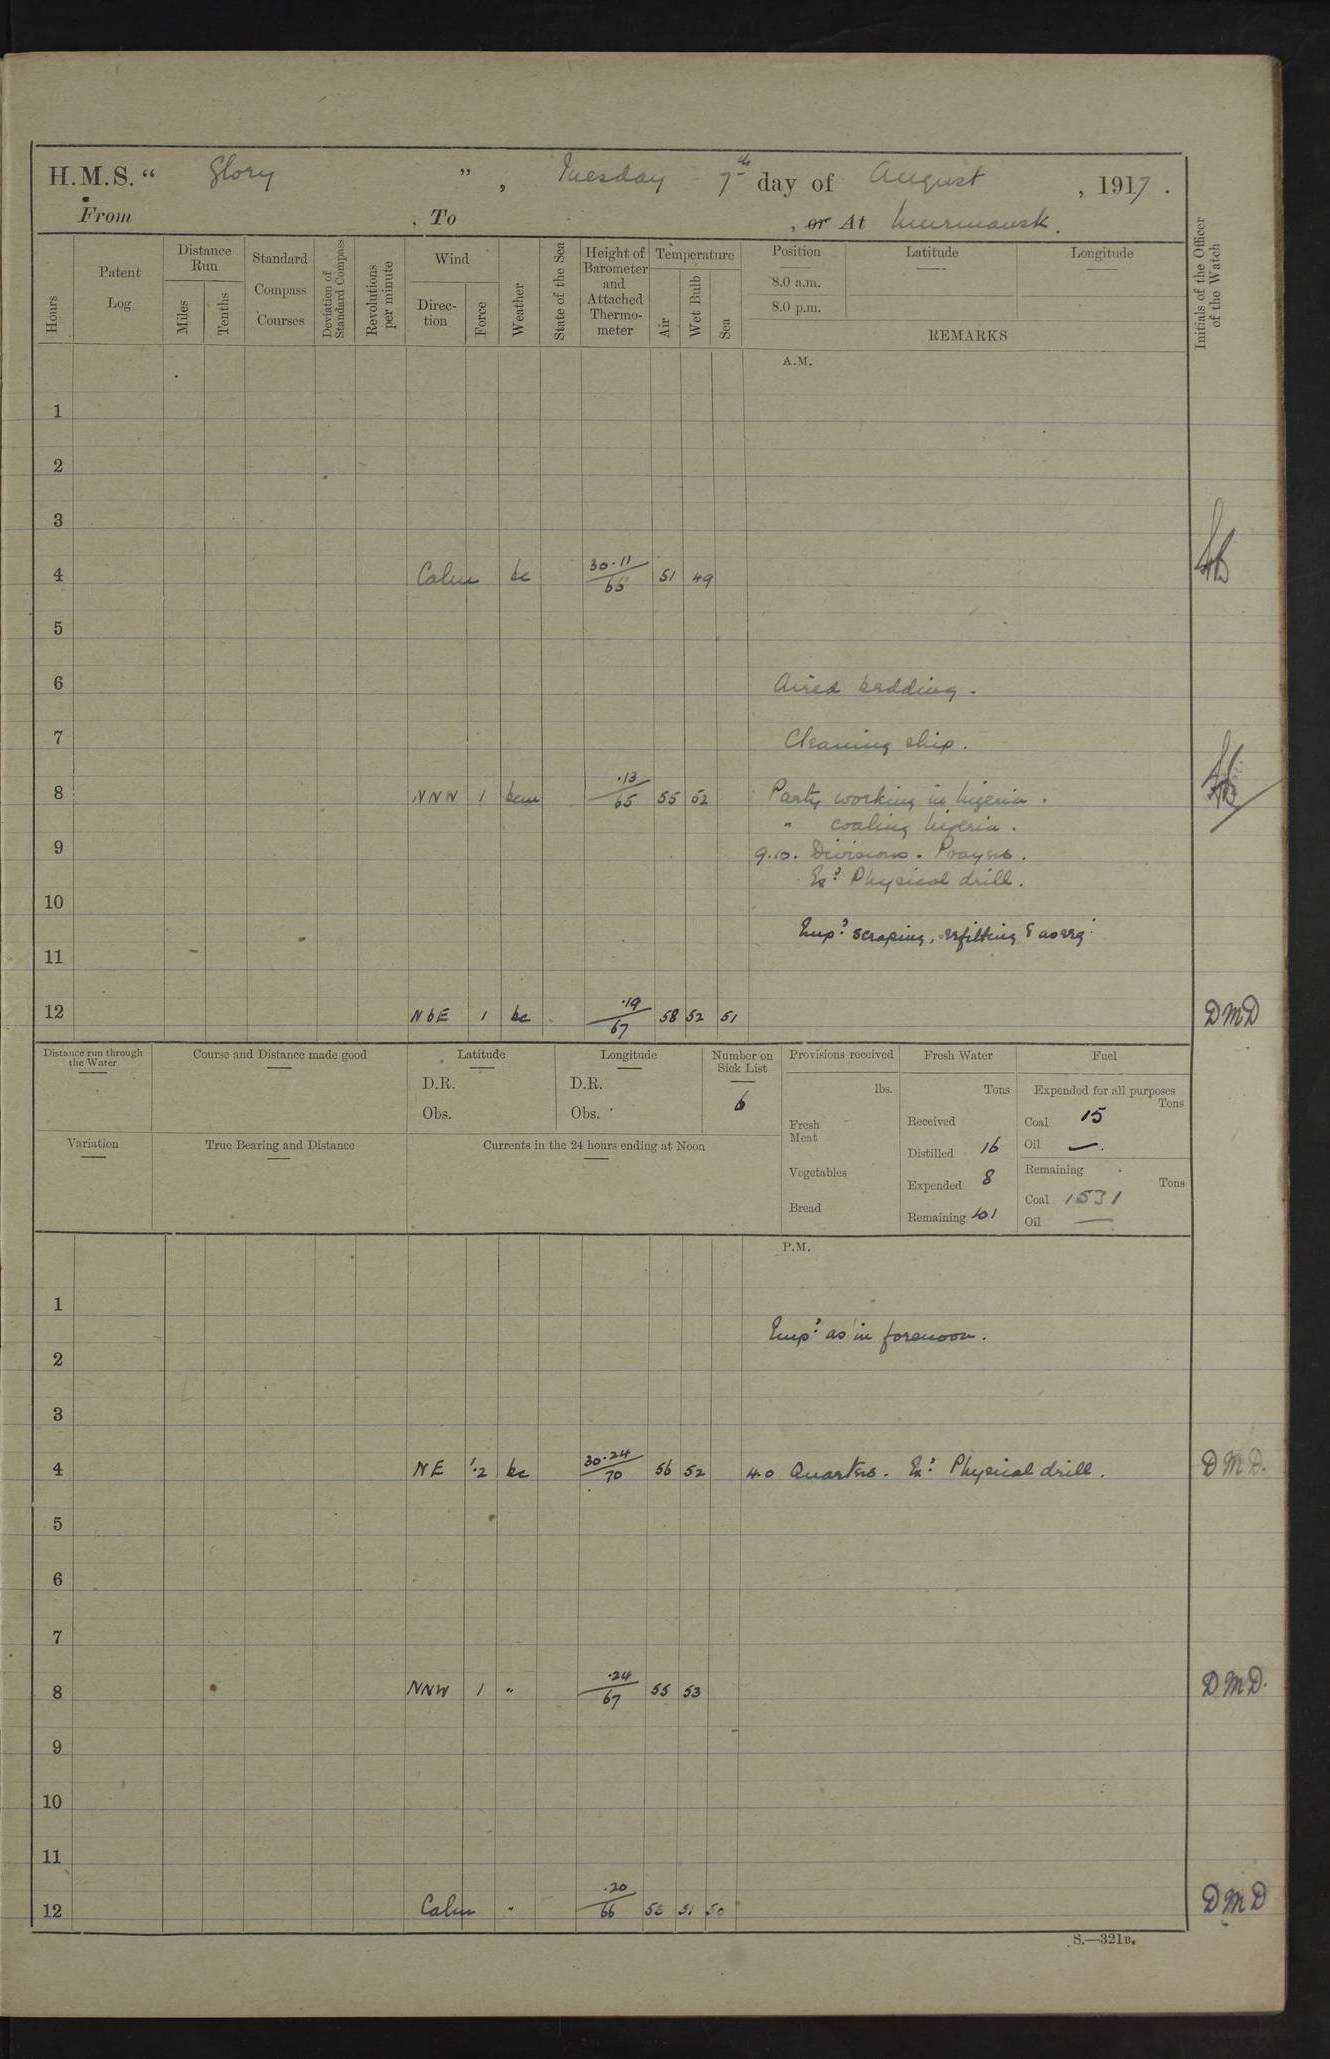 H.M.S. “ Glory ” , Tuesday 7th day of August , 1917 .
From , To , or At Murmansk.
Hours
Patent Log
Distance Run
Miles
Tenths
Standard Compass Courses
Deviation of Standard Compass
Revolutions per minute
Wind
Direction
Force
Weather
State of the Sea
Height of Barometer and Attached Thermometer
Temperature
Air
Wet Bulb
Sea
Position
8.0 a.m.
8.0 p.m.
Latitude
Longitude
REMARKS
Initials of the Officer of the Watch
A.M.
1
2
3
4 Calm bc 30·11/65 51 49
5
6 Aired bedding.
7 Cleaning ship.
8 NNW 1 bcm ·13/65 55 52 Party working in Nigeria.
" coaling Nigeria.
9 9.10. Divisions. Prayers.
Exd Physical drill.
10
Empd scraping, refitting & as req.
11
12 NbE 1 bc ·19/67 58 52 51 DMD
Distance run through the Water
Course and Distance made good
Latitude
D.R.
Obs.
Longitude
D.R.
Obs.
Number on Sick List
6
Provisions received
lbs.
Fresh Meat
Vegetables
Bread
Fresh Water
Tons
Received
Distilled 16
Expended 8
Remaining 101
Fuel
Expended for all purposes
Tons
Coal 15
Oil —.
Remaining
Tons
Coal 1531
Oil —
Variation
True Bearing and Distance
Currents in the 24 hours ending at Noon
P.M.
1
Empd as in forenoon.
2
3
4 NE 1·2 bc 30·24/70 56 52 4.0 Quarters. Exd Physical drill. DMD.
5
6
7
8 NNW 1 " ·24/67 55 53 DMD.
9
10
11
12 Calm " ·20/66 53 51 50 DMD
S.—321B.